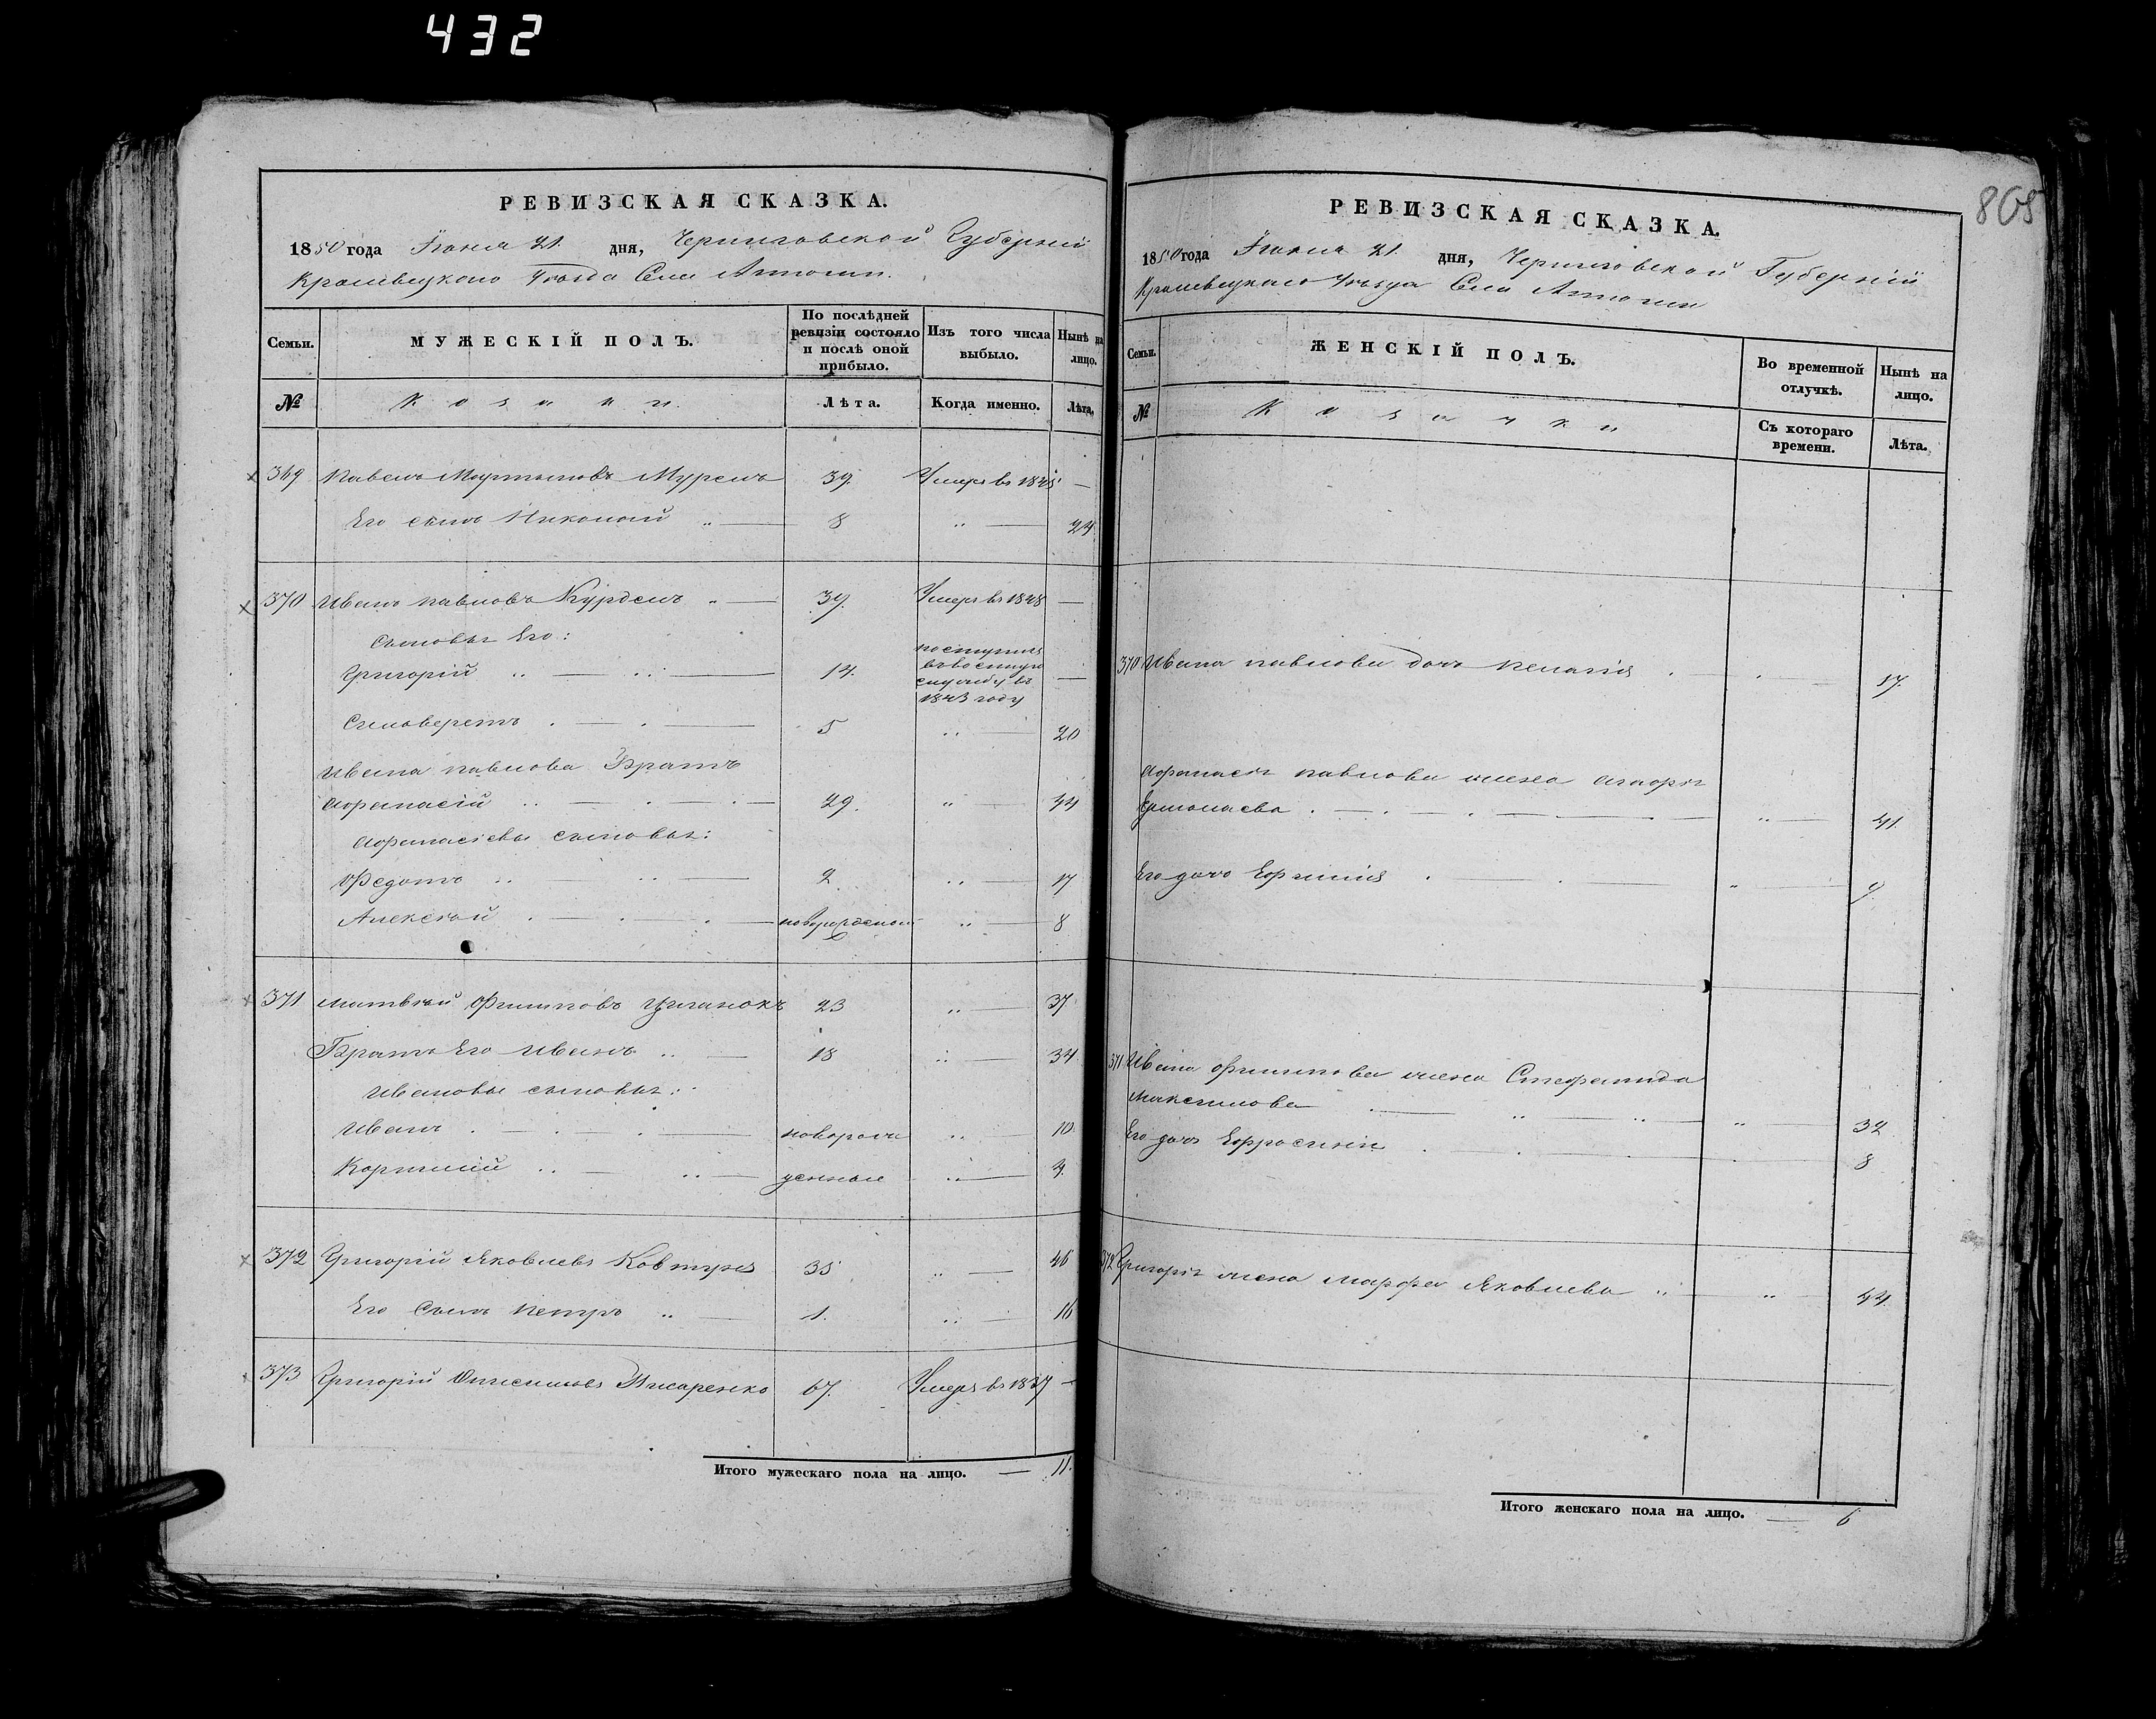 432
РЕВИЗСКАЯ СКАЗКА.
1850 года Іюня 21 дня, Черниговской Губерніи
Кролевецкаго Уѣзда Села
МУЖЕСКІЙ ПОЛЪ.
Семьи.
По послѣдней ревизіи состояло и послѣ оной прибыло.
Изъ того числа выбыло.
Нынѣ на лицо.
№
Козаки
Лѣта.
Когда именно.
Лѣта.
369 Павелъ Мартыновъ 39. Умеръ въ —
Его сынъ 8 „ — 24
370 Иванъ Павловъ Курдель „ — 39. Умеръ въ 1848 —
Сыновья Его:
Григорій 14. поступилъ въ военную службу въ 1843 году —
5 „ — 20
Ивана Павлова Братъ
Афанасій 29. „ — 44
Афанасіевы сыновья:
Федотъ 2 „ — 17
Алексѣй новорожденный „ — 8
371 Матвѣй Филиповъ Цыганокъ 23 „ — 37
Братъ Его Иванъ 18 „ — 34
Ивановы сыновья:
Иванъ новорож „ — 10
Корнилій денные „ —
372 Григорій Яковлевъ Ковтунъ 35 „ — 46
Его Сынъ Петръ 1. „ — 16
373 Григорій Онисимовъ Писаренко 67. Умеръ въ 1837 —
Итого мужескаго пола на лицо. — 11.
865
РЕВИЗСКАЯ СКАЗКА.
1850 года Іюня 21 дня, Черниговской Губерніи
Кролевецкаго Уѣзда Села
Семьи.
ЖЕНСКІЙ ПОЛЪ.
Во временной отлучкѣ.
Нынѣ на лицо.
№
Козачки
Съ котораго времени.
Лѣта.
370 Ивана Павлова дочь Пелагія 17.
Афанасія Павлова жена
Ермолаева „ — 41
Его дочь Ефимія „ — 9
371 Ивана Филипова жена Стефанида
Максимова „ — 32
Его дочь Ефросинія 8
372 Григорія жена Марфа Яковлева „ — 44
Итого женскаго пола на лицо. — 6